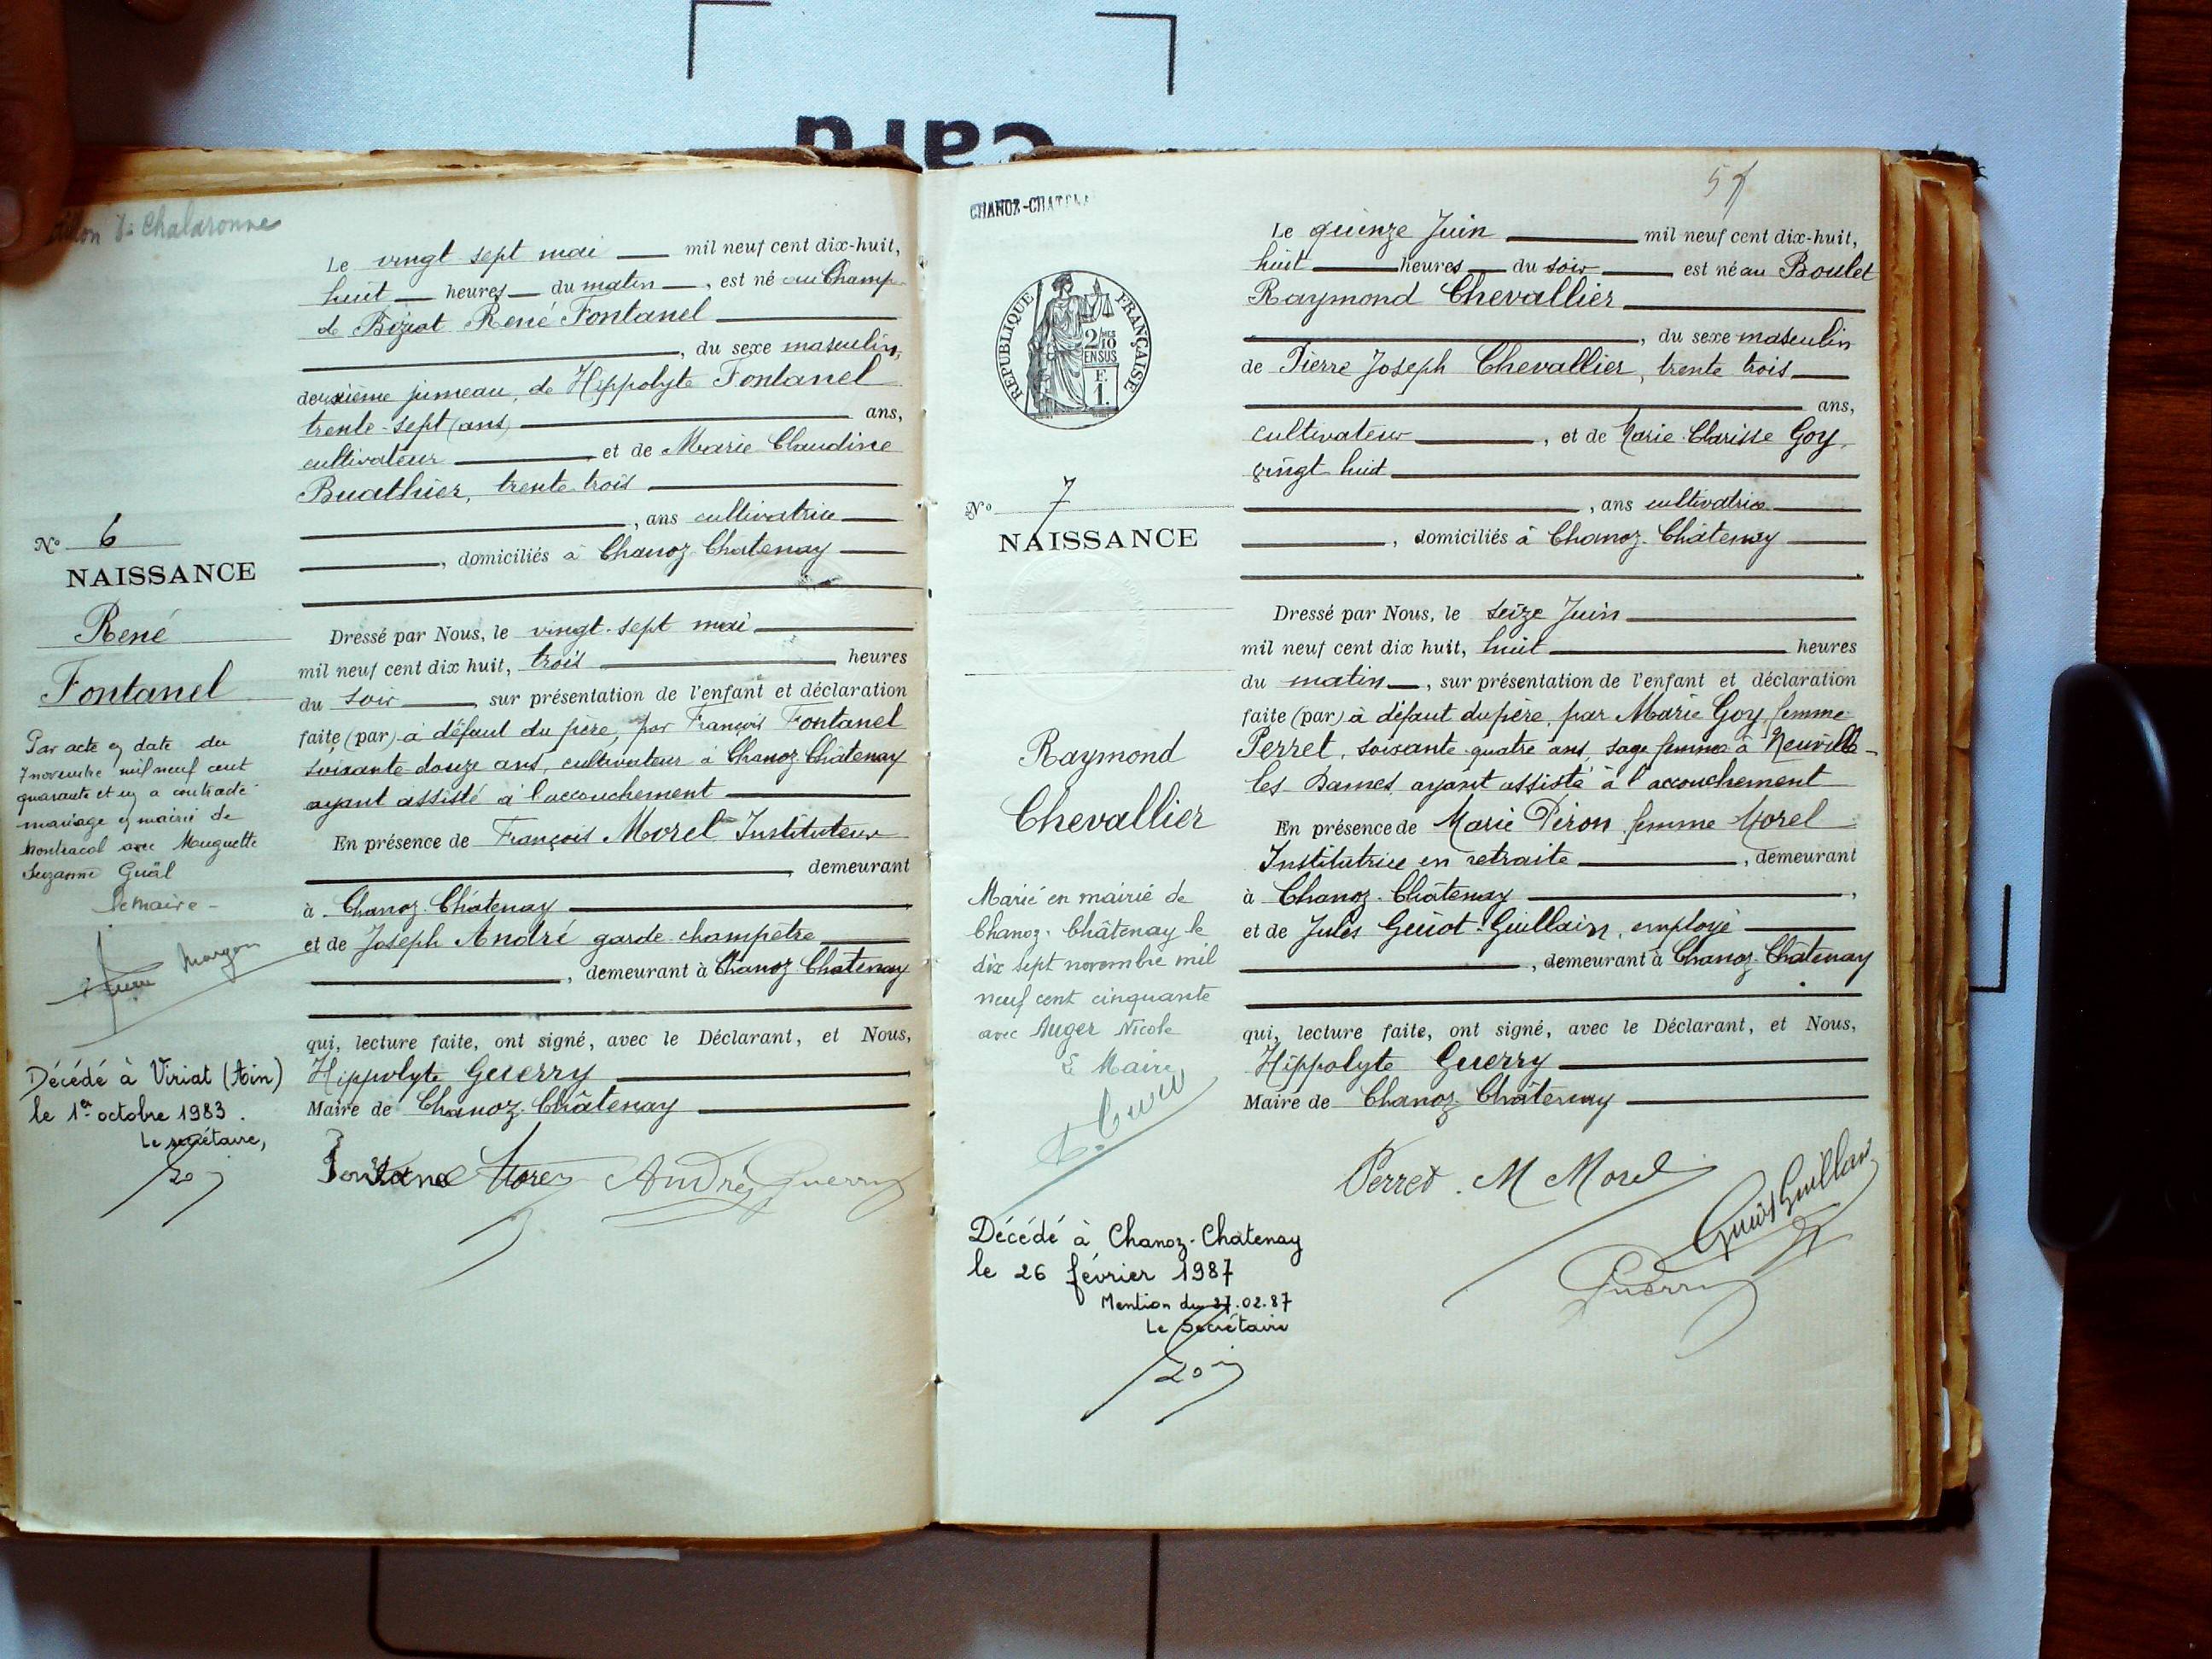 Card
Chalaronne
Le vingt sept mai mil neuf cent dix-huit,
huit heures du matin, est né au Champ
de Biziat René Fontanel
, du sexe masculin,
deuxième jumeau, de Hippolyte Fontanel
trente-sept (ans) ans,
cultivateur et de Marie Claudine
Buathier, trente-trois
, ans cultivatrice
, domiciliés à Chanoz-Chatenay
Dressé par Nous, le vingt-sept mai
mil neuf cent dix huit, trois heures
du soir, sur présentation de l'enfant et déclaration
faite (par) à défaut du père, par François Fontanel
soixante-douze ans, cultivateur à Chanoz-Châtenay
ayant assisté à l'accouchement
En présence de François Morel Instituteur
, demeurant
à Chanoz-Châtenay
et de Joseph André garde-champêtre
, demeurant à Chanoz-Chatenay
qui, lecture faite, ont signé, avec le Déclarant, et Nous,
Hippolyte Guerry
Maire de Chanoz-Châtenay
Fontanel Morel André Guerry
No 6
NAISSANCE
René
Fontanel
Par acte en date du
7 novembre mil neuf cent
quarante et un a contracté
mariage en mairie de
Montracol avec Muguette
Suzanne Guäl
Le maire -
Décédé à Viriat (Ain)
le 1er octobre 1983.
Le secrétaire,
57
CHANOZ-CHATENAY
RÉPUBLIQUE FRANÇAISE
2/10
MES
EN SUS
F.
1.
Le quinze Juin mil neuf cent dix-huit,
huit heures du soir est né au Boulet
Raymond Chevallier
, du sexe masculin
de Pierre Joseph Chevallier, trente trois
ans,
cultivateur, et de Marie-Clarisse Goy,
vingt-huit
, ans cultivatrice
, domiciliés à Chanoz-Châtenay
Dressé par Nous, le seize Juin
mil neuf cent dix huit, huit heures
du matin, sur présentation de l'enfant et déclaration
faite (par) à défaut du père, par Marie Goy femme
Perret, soixante-quatre ans, sage femme à Neuville-
les Dames, ayant assisté à l'accouchement
En présence de Marie Piron femme Morel
Institutrice en retraite, demeurant
à Chanoz-Châtenay,
et de Jules Guiot-Guillain, employé
, demeurant à Chanoz-Châtenay
qui, lecture faite, ont signé, avec le Déclarant, et Nous,
Hippolyte Guerry
Maire de Chanoz-Châtenay
Perret. M Morel
Guiot Guillain
Guerry
No 7
NAISSANCE
Raymond
Chevallier
Marié en mairie de
Chanoz-Châtenay le
dix sept novembre mil
neuf cent cinquante
avec Auger Nicole
Le Maire
Décédé à Chanoz-Chatenay
le 26 février 1987
Mention du 27.02.87
Le Secrétaire